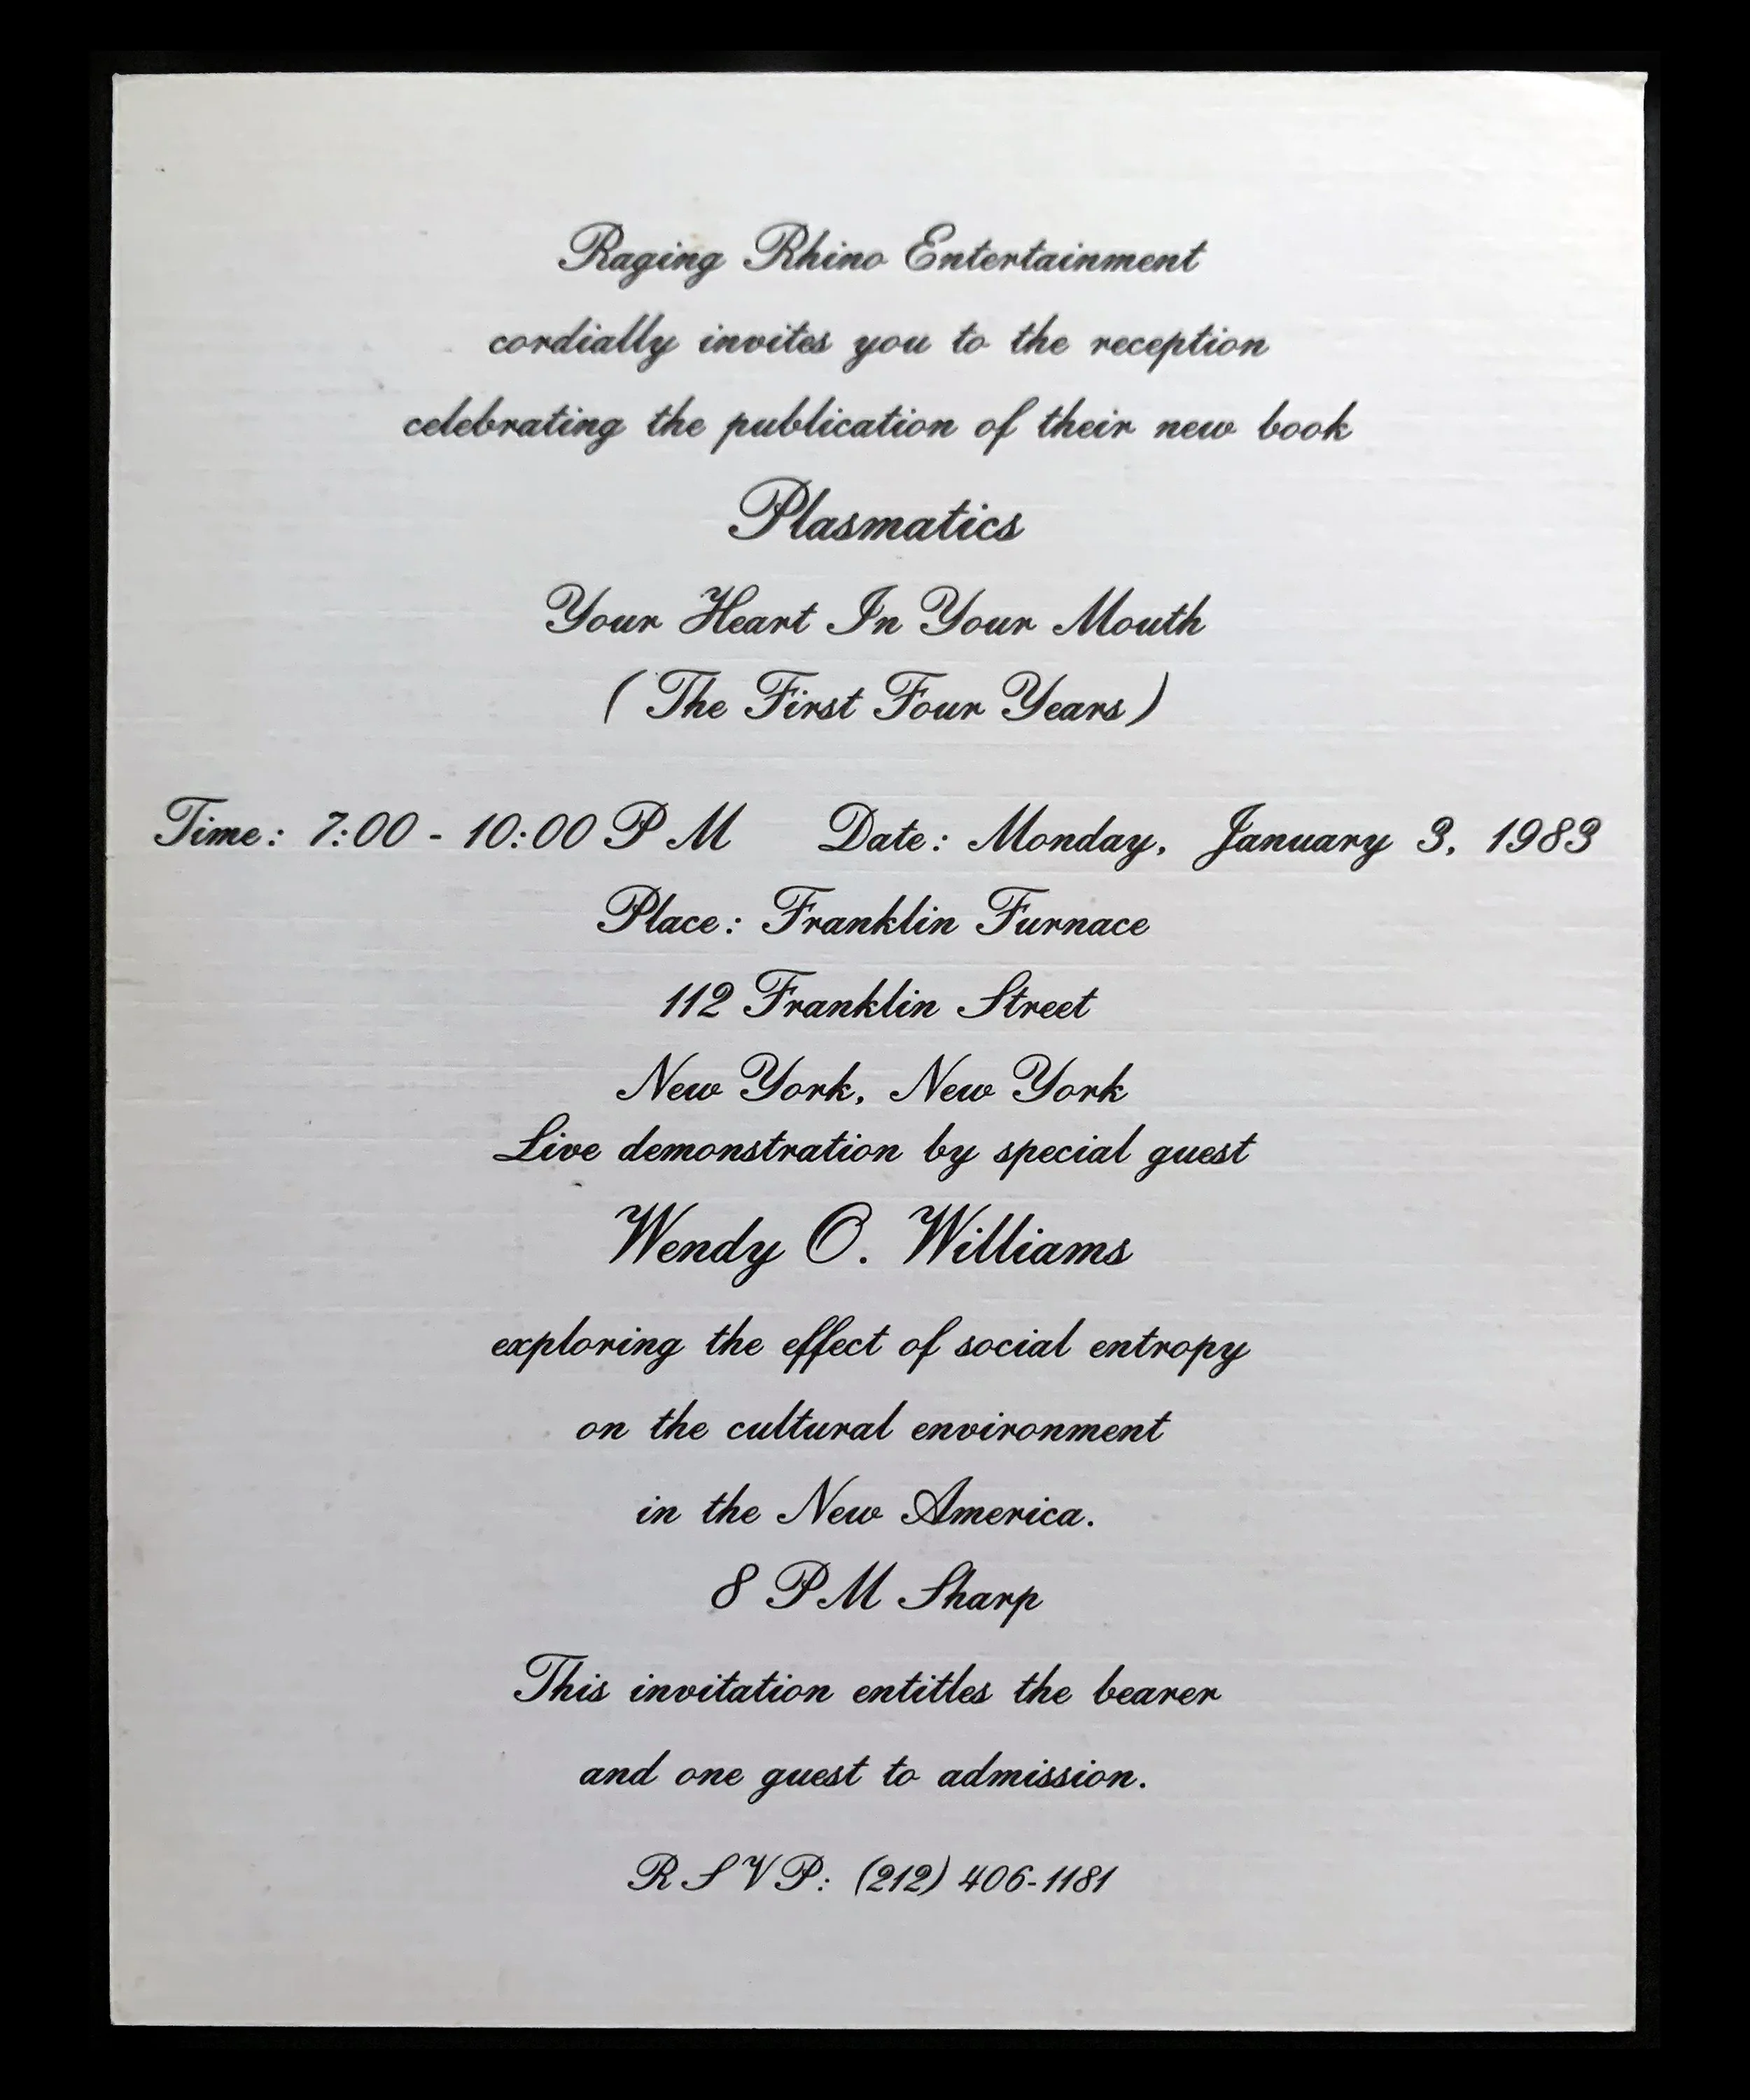 Raging Rhino Entertainment
cordially invites you to the reception
celebrating the publication of their new book
Plasmatics
Your Heart In Your Mouth
(The First Four Years)
Time: 7:00 - 10:00 P M Date: Monday, January 3, 1983
Place: Franklin Furnace
112 Franklin Street
New York, New York
Live demonstration by special guest
Wendy O. Williams
exploring the effect of social entropy
on the cultural environment
in the New America.
8 PM Sharp
This invitation entitles the bearer
and one guest to admission.
R S V P: (212) 406-1181